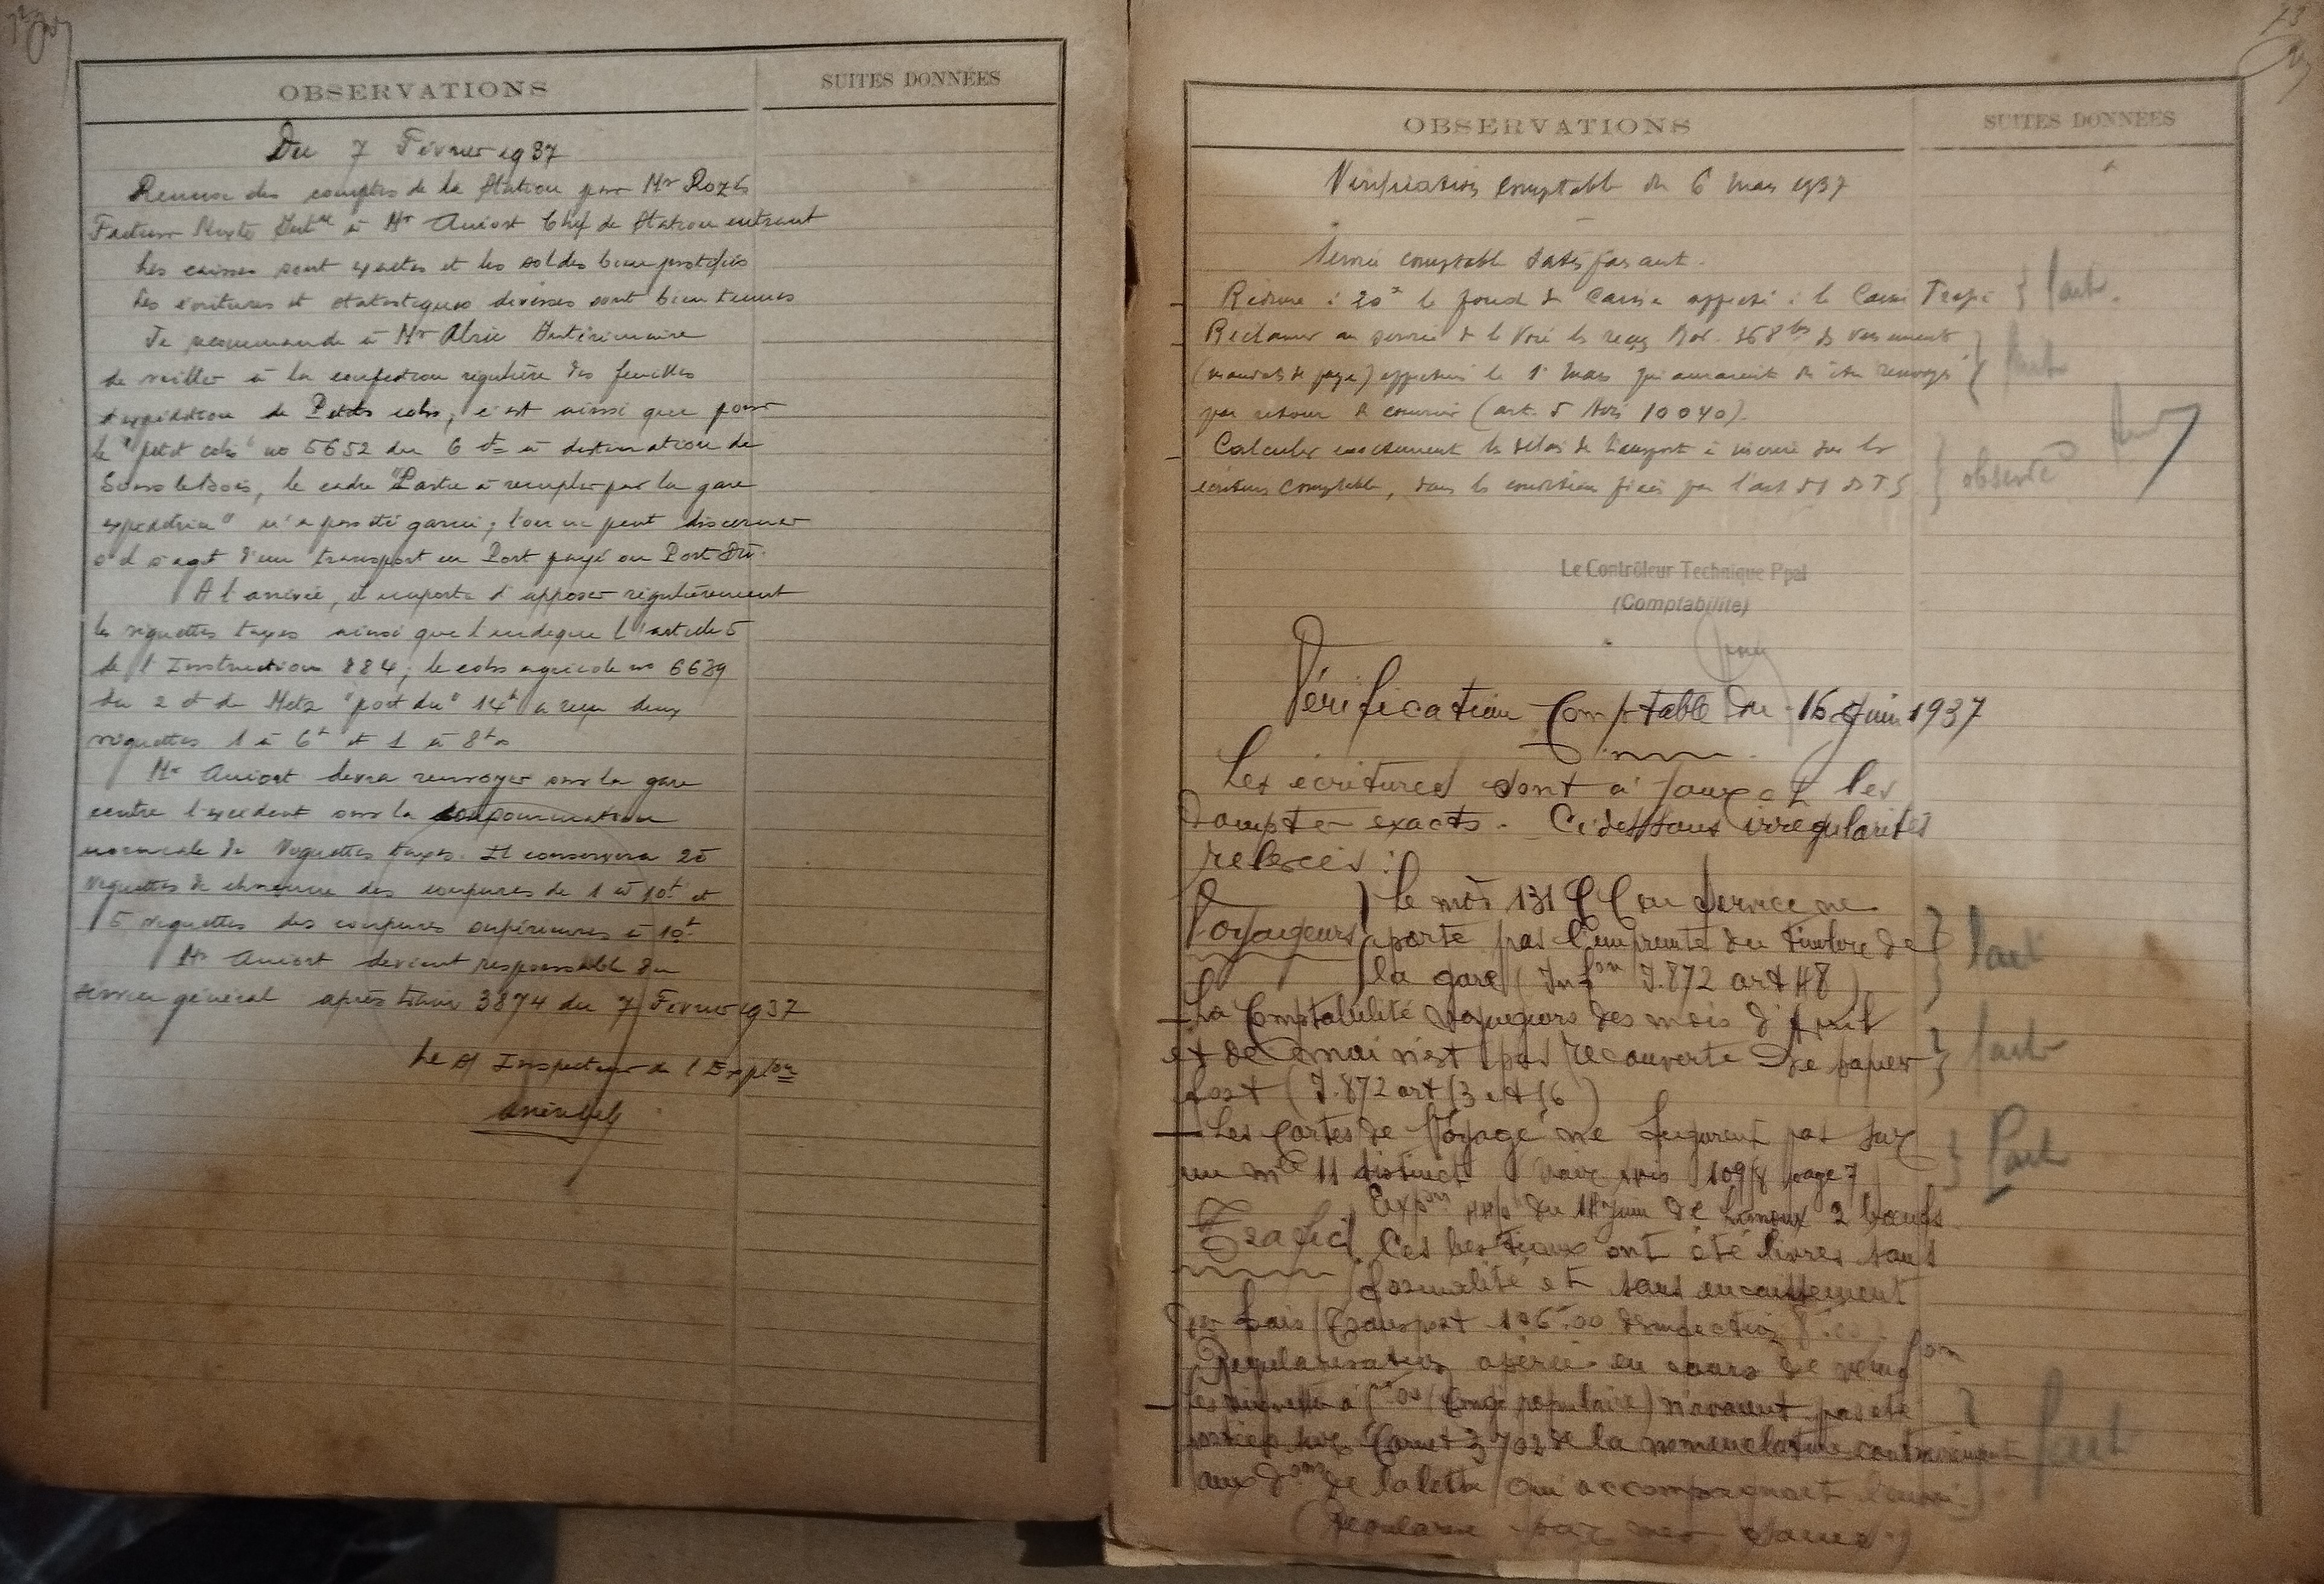 OBSERVATIONS
SUITES DONNÉES
Du 7 Février 1937
Remise des comptes de la Station par Mr Rozès
Facteur Mixte Intre à Mr Amiort Chef de Station entrant
Les caisses sont exactes et les soldes bien justifiés
Les écritures et statistiques diverses sont bien tenues
Je recommande à Mr Alric Intérimaire
de veiller à la confection régulière des feuilles
d'expédition de Petits colis; c'est ainsi que pour
le "petit colis" no 5652 du 6 ct à destination de
le cadre "Partie à remplir par la gare
expéditrice" n'a pas été garni; l'on ne peut discerner
s'il s'agit d'un transport en Port payé ou Port dû.
A l'arrivée, il importe d'apposer régulièrement
les vignettes taxes ainsi que l'indique l'article 5
de l'Instruction 884; le colis agricole no 6639
du 2 ct de Metz "port du" 14f a reçu deux
vignettes 1 à 6f et 1 à 8f
Mr Amiort devra renvoyer sur la gare
centre l'excédent sur la consommation
normale de Vignettes taxes. Il conservera 25
vignettes de chacune des coupures de 1 à 10f et
5 vignettes des coupures supérieures à 10f
Mr Amiort devient responsable du
service général après train 3874 du 7 Février 1937
Le S/ Inspecteur de l'Exploon
OBSERVATIONS
SUITES DONNÉES
Vérification Comptable du 6 Mars 1937
Service comptable satisfaisant.
Réduire à 20f le fond de Caisse affecté à la Caisse Trafic
Fait.
Réclamer au service de la Voie les reçus Mod. 368 bis de versement
(mandats de paye) effectués le 1er Mars qui auraient du être renvoyés
Fait
par retour du courrier (art. 5 Avis 10040).
Calculer exactement les délais de transport à inscrire sur les
écritures comptables, dans les conditions fixées par l'art 51 des T.G
observé
Le Contrôleur Technique Ppal
(Comptabilité)
Vérification Comptable du 16 Juin 1937
Les écritures sont à jour et les
comptes exacts. Ci dessous irrégularités
relevées :
Le mod 131 CC en service ne
Voyageurs porte pas l'empreinte du timbre de
la gare (Inson J.872 art 48)
fait
La Comptabilité voyageurs des mois d'Avril
et de mai n'est pas recouverte de papier
fort (J.872 art 13 et 16)
fait
Les Cartes de Voyage ne figurent pas sur
un mle 11 distinct Voir avis 1098 page 7
Fait
Expon du 14 Juin de Limoux 2 bœufs
Trafic Ces bestiaux ont été livrés sans
formalité et sans encaissement
des frais Transport 126.00 désinfection
Régularisation opérée en cours de vérifon
Les vignettes à (Congé populaire) n'avaient pas été
portées sur Carnet 3702 de la nomenclature contrairement
fait
aux dons de la lettre qui accompagnait l'envoi.
(Régularisé par mes soins)